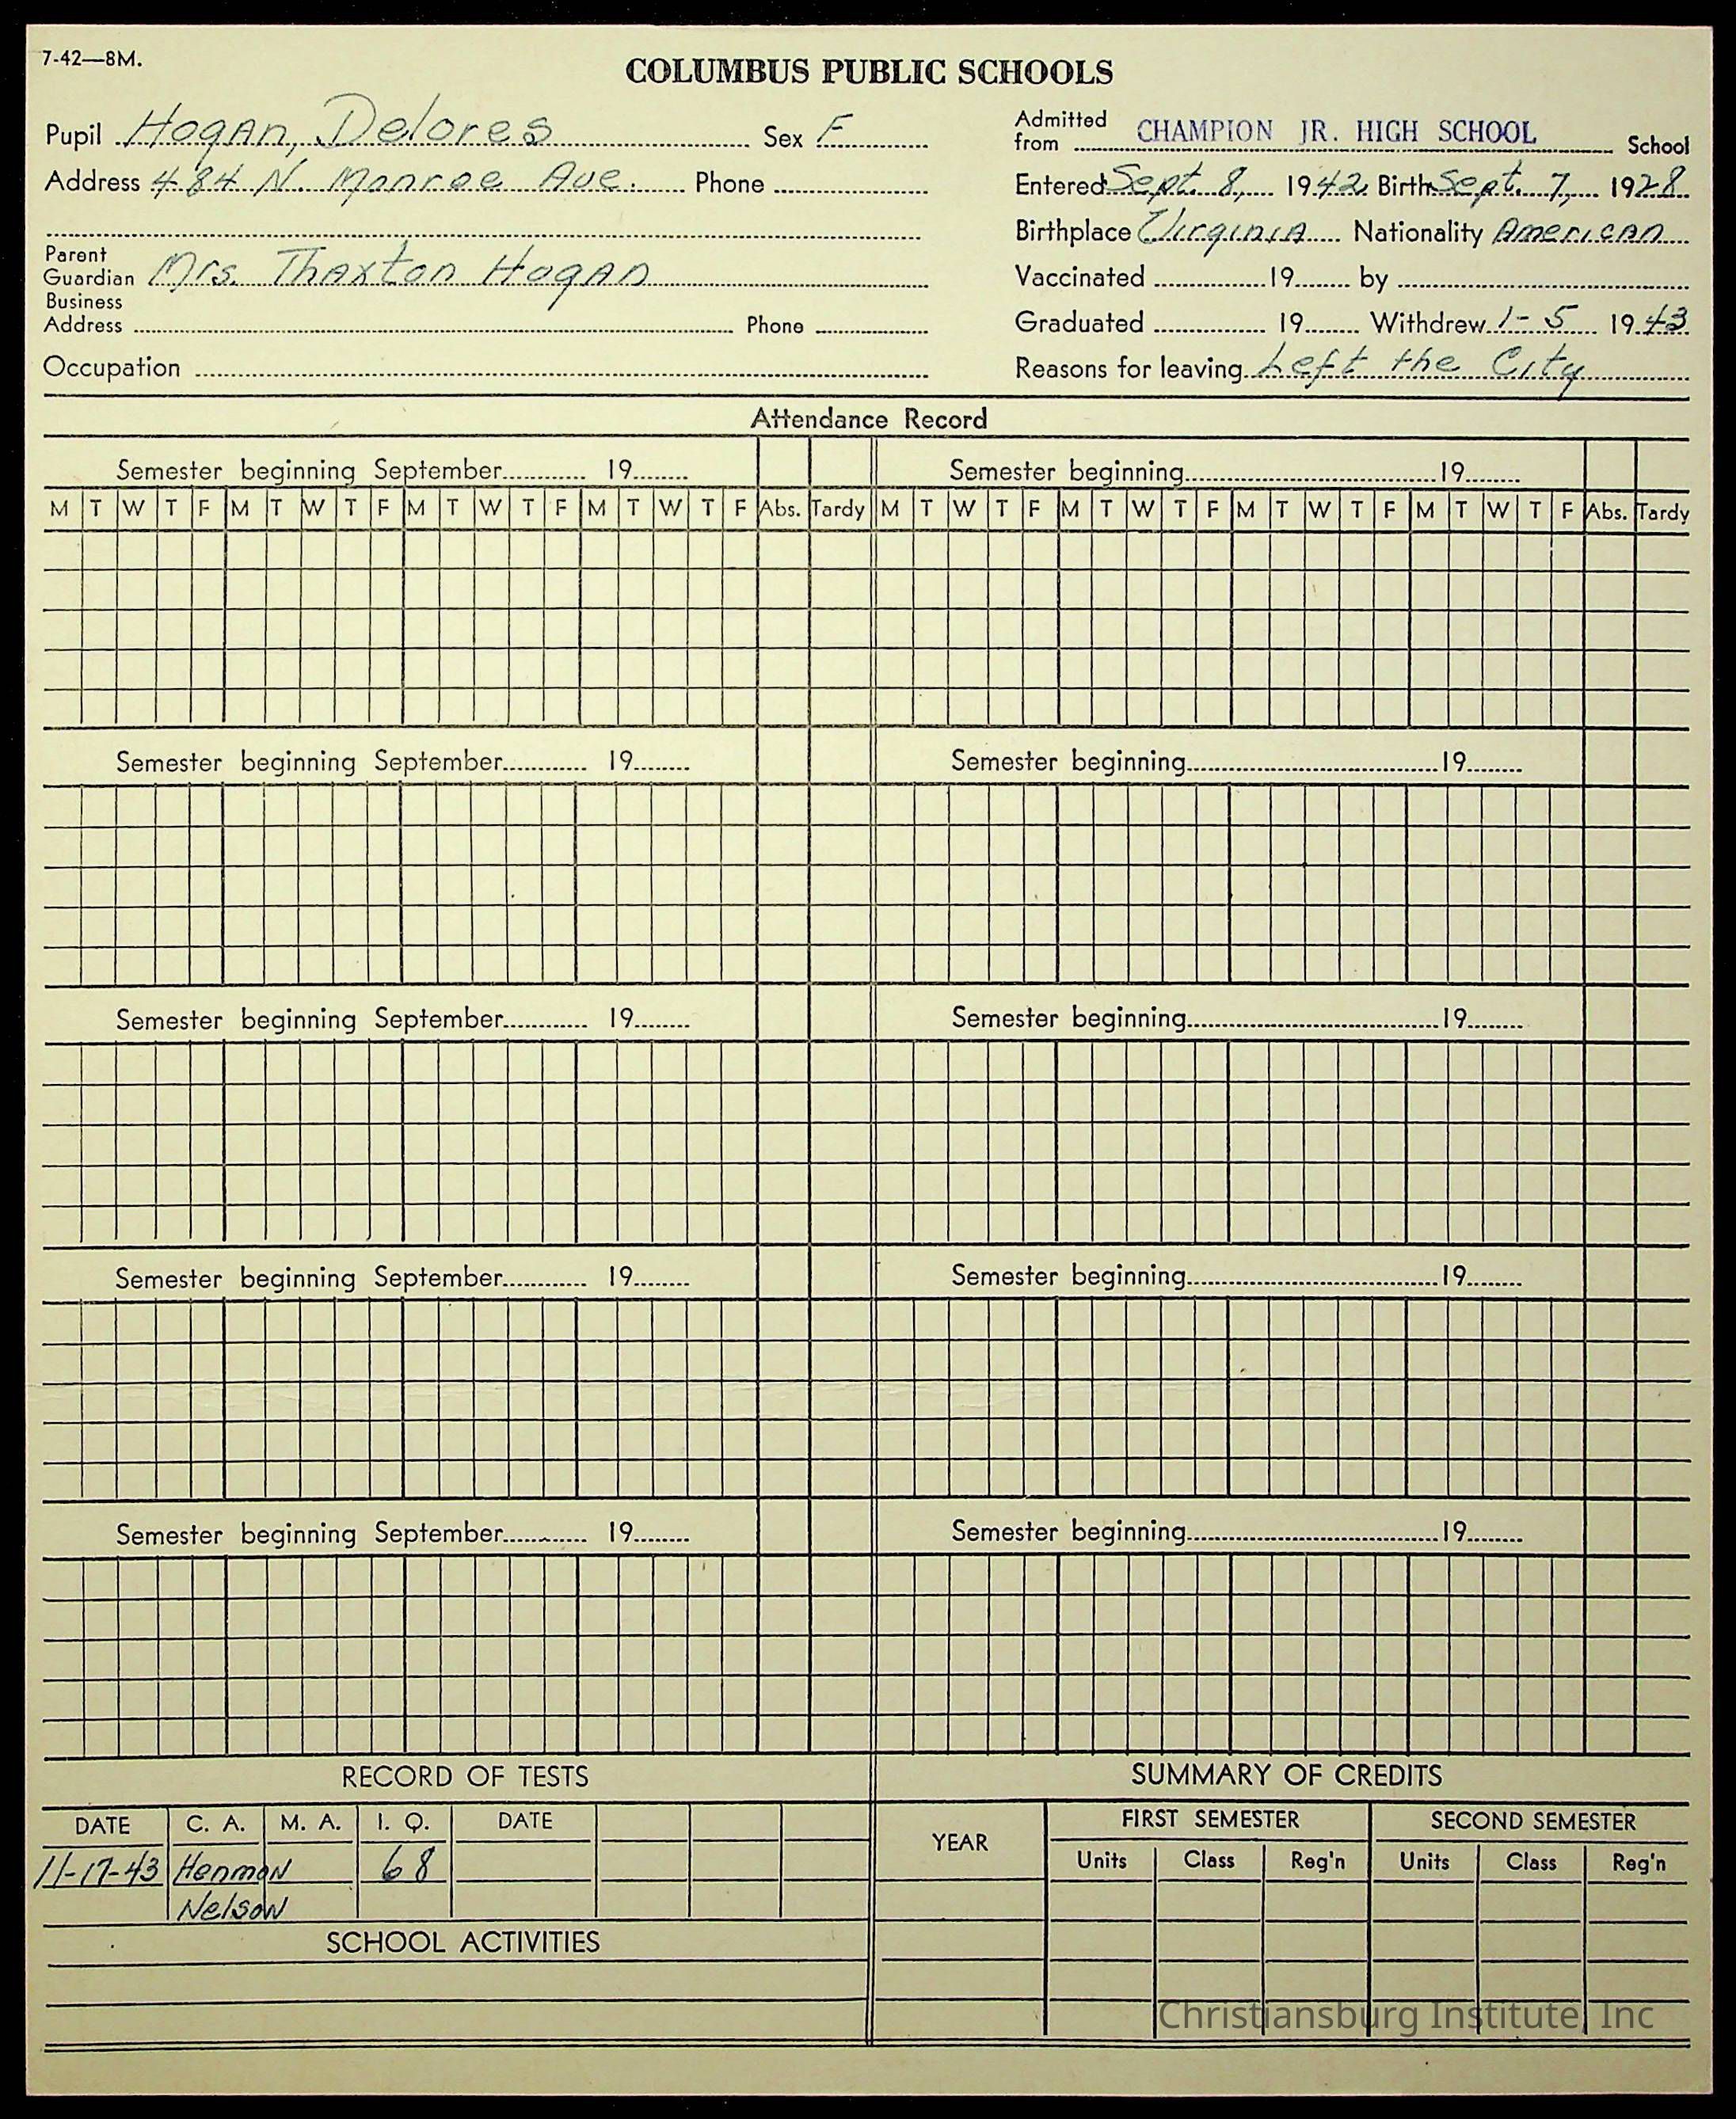 7-42—8M.
COLUMBUS PUBLIC SCHOOLS
Pupil Hogan, Delores Sex F
Address 484 N. Monroe Ave. Phone
Parent
Guardian Mrs. Thaxton Hogan
Business
Address Phone
Occupation
Admitted
from CHAMPION JR. HIGH SCHOOL School
Entered Sept. 8, 1942 Birth Sept. 7, 1928
Birthplace Virginia Nationality American
Vaccinated 19 by
Graduated 19 Withdrew 1-5 1943
Reasons for leaving Left the City
Attendance Record
Semester beginning September 19 Semester beginning 19
M T W T F M T W T F M T W T F M T W T F Abs. Tardy M T W T F M T W T F M T W T F M T W T F Abs. Tardy
Semester beginning September 19 Semester beginning 19
Semester beginning September 19 Semester beginning 19
Semester beginning September 19 Semester beginning 19
Semester beginning September 19 Semester beginning 19
RECORD OF TESTS
DATE C. A. M. A. I. Q. DATE
11-17-43 Henmon 68
Nelson
SCHOOL ACTIVITIES
SUMMARY OF CREDITS
YEAR FIRST SEMESTER SECOND SEMESTER
Units Class Reg'n Units Class Reg'n
Christiansburg Institute, Inc